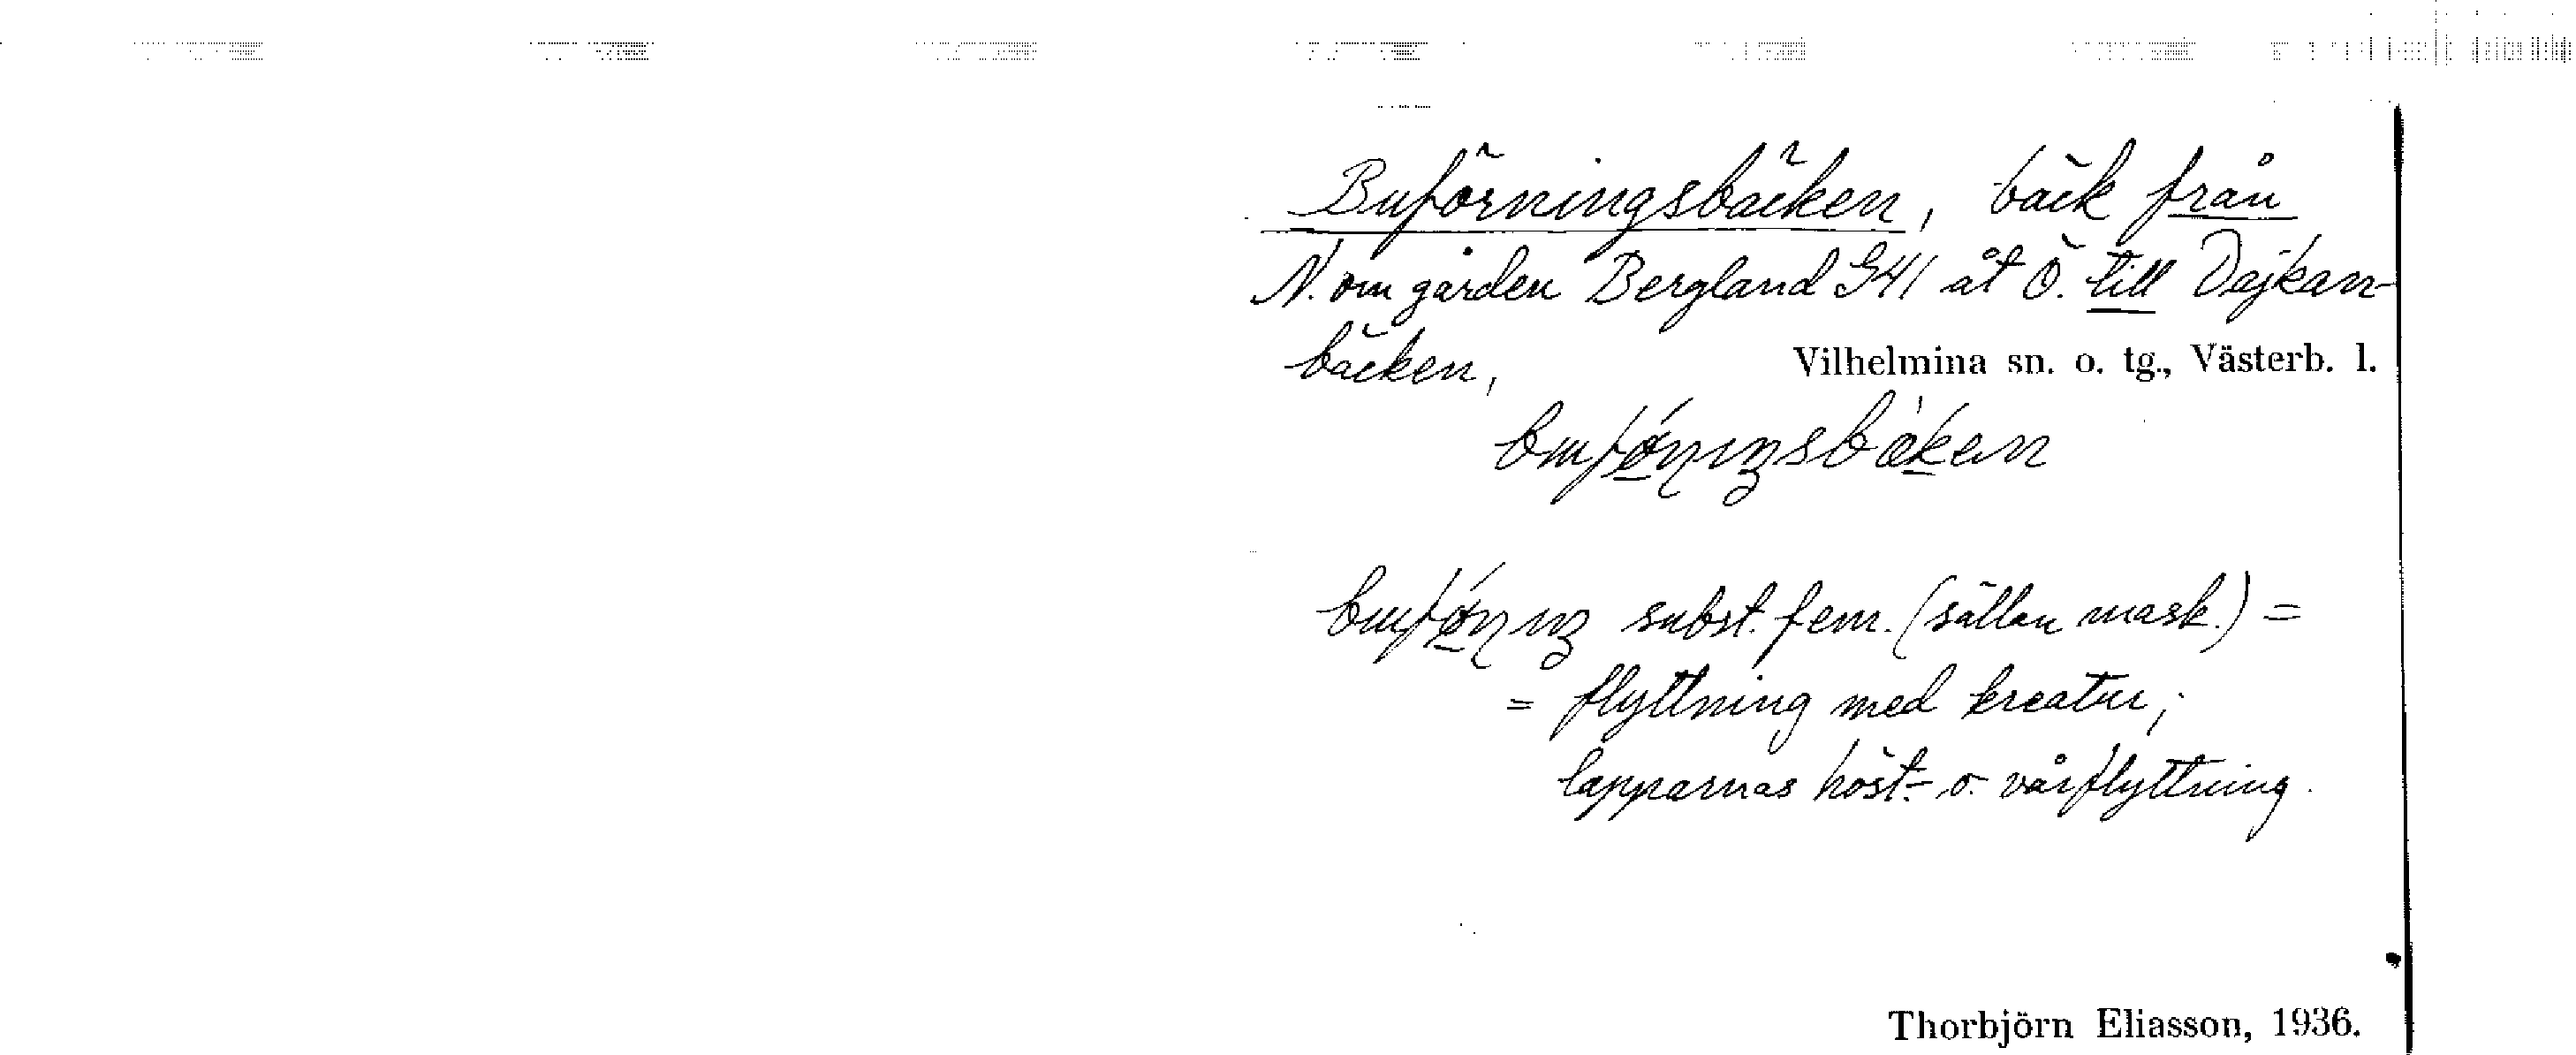 Buförningsbäcken, bäck från
N. om gården Bergland G41 åt Ö. till Dajkan-
bäcken,
Vilhelmina sn. o. tg., Västerb. l.
subst. fem. (sällan mask.) =
= flyttning med kreatur;
lapparnas höst- o. vårflyttning.
Thorbjörn Eliasson, 1936.